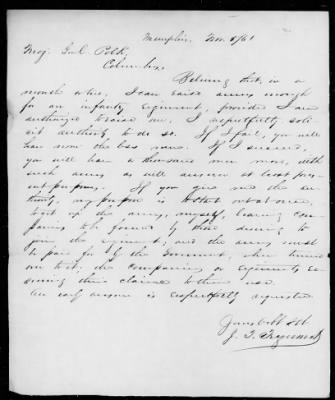 Memphis, Nov 8/61
Maj: Genl. Polk,
Columbus,
Believing that, in a
month also, I can raise arms enough
for an infantry regiment, provided I am
authorized to raise one, I respectfully soli-
cit authority to do so. If I fail, you will
have none the less men. If I succeed,
you will have a thousand men more, with
such arms as will answer at least pres-
ent purposes. If you give me the au-
thority, my purpose is to start out at once,
to get up the arms, myself, leaving com-
panies to be formed by those desiring to
join the regiment; and the arms must
be paid for by the Government, when turned
over to it; the companies or regiments re-
serving their claim to their use.
An early answer is respectfully requested.
Your obt Svt